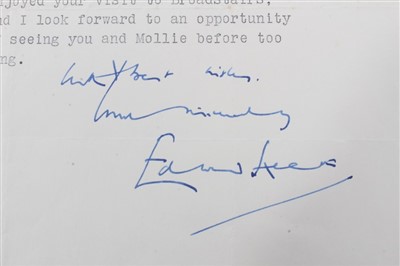 njoyed your visit to Broadstairs,
nd I look forward to an opportunity
f seeing you and Mollie before too
ng.
with best wishes.
Yours sincerely
Edward Heath